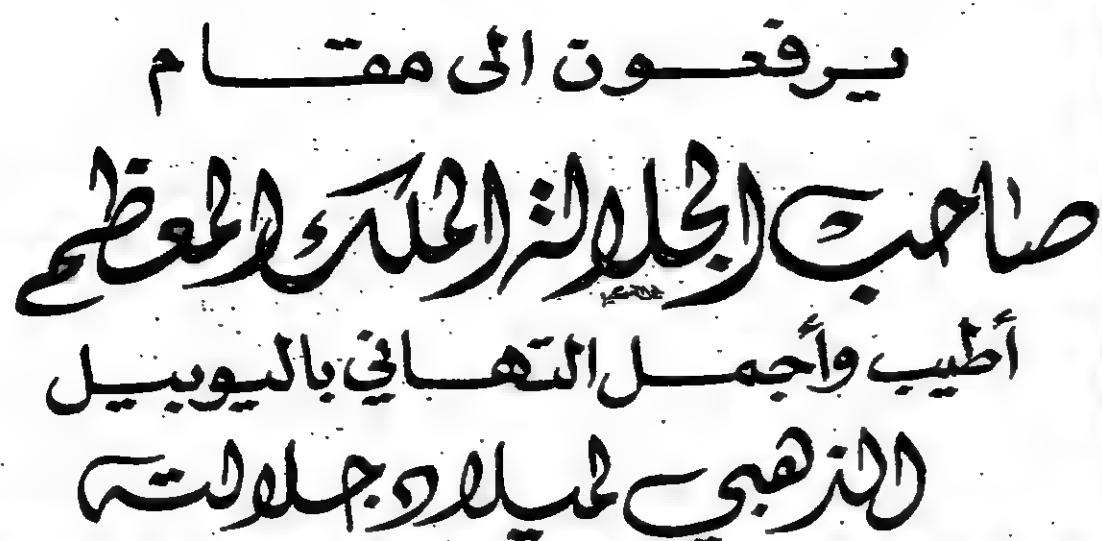 يرفعون الى مقام
صاحب الجلالة الملك المعظم
أطيب وأجمل التهاني باليوبيل
الذهبي لميلاد جلالته